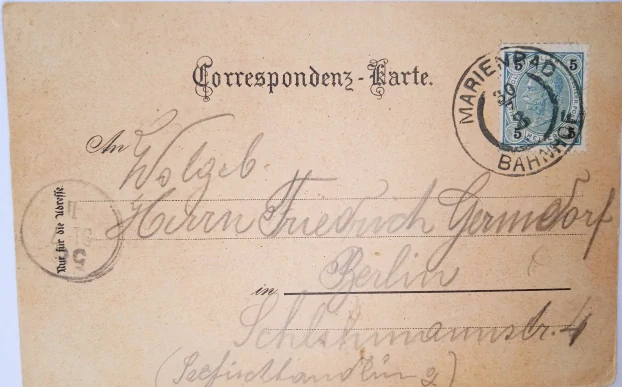 Correspondenz-Karte.
MARIENBAD
BAHNHOF
5 5
5 5
An
Wolgeb.
Herrn Friedrich Germdorf
Nur für die Adresse.
in Berlin
4
(Seefischhandlung)